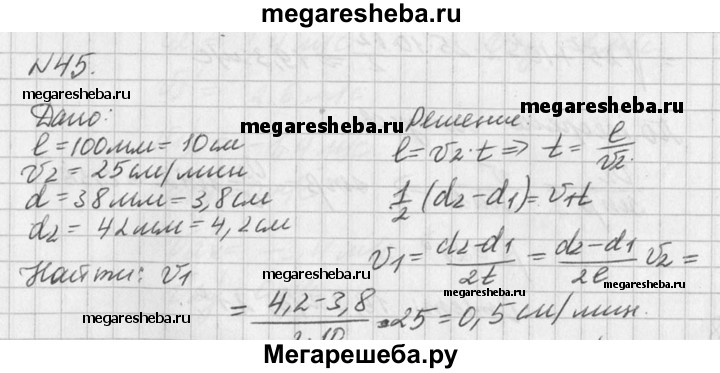 megaresheba.ru
№45.
megaresheba.ru
Дано:
l = 100мм = 10см
v2 = 25см/мин
d = 38мм = 3,8см
d2 = 42мм = 4,2см
Найти: v1
megaresheba.ru
megaresheba.ru
megaresheba.ru
Решение:
l = v2·t ⇒ t = l/v2.
1/2 (d2-d1) = v1t
v1 = (d2-d1)/2t = (d2-d1)/2l v2 =
megaresheba.ru
megaresheba.ru
= (4,2-3,8)/2·10 ·25 = 0,5см/мин.
megaresheba.ru
Мегарешеба.ру